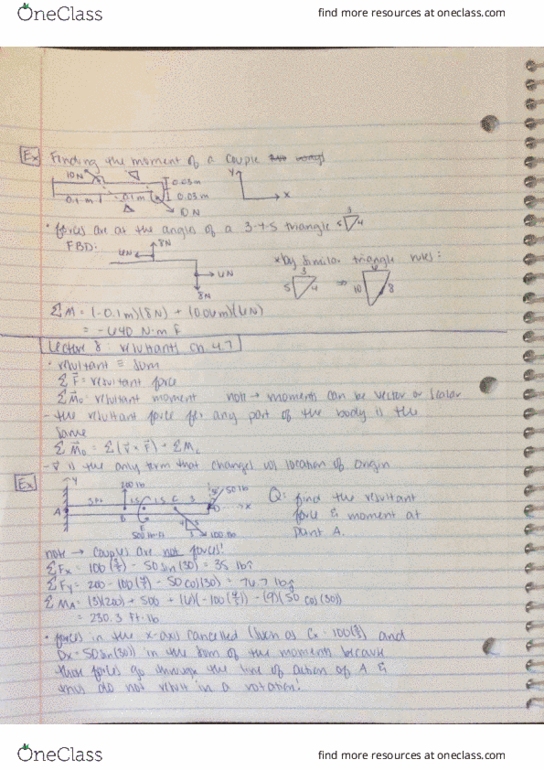 OneClass
find more resources at oneclass.com
Ex Finding the moment of a couple
10N
0.03m
0.03m
0.1m
0.1m
10 N
y
x
• forces are at the angles of a 3-4-5 triangle
3
5
4
FBD:
8N
8N
*by similar triangle rules:
3
5
4
⇒
10
8
ΣM = (-0.1m)(8N) +
Lecture 8: resultants ch 4.7
• resultant ≡ sum
ΣF = resultant force
ΣM₀ = resultant moment note → moments can be vector or scalar
- the resultant force for any part of the body is the
same
- r is the only term that changes w/ location of origin
Ex
y
A
B
C
E
x
50 lb
100 lb
Q: find the resultant
force & moment at
point A.
note → couples are not forces!
ΣFx = 100(3/5) - 50 sin(30) = 35 lbf
ΣFy = 200 - 100(4/5) - 50 cos(30) = 76.7 lbf
= 230.3 ft·lb
• forces in the x-axis cancelled (such as Cx = 100(3/5) and
Dx = 50 sin(30)) in the sum of the moments because
these forces go through the line of action of A &
thus do not result in a rotation!
OneClass
find more resources at oneclass.com